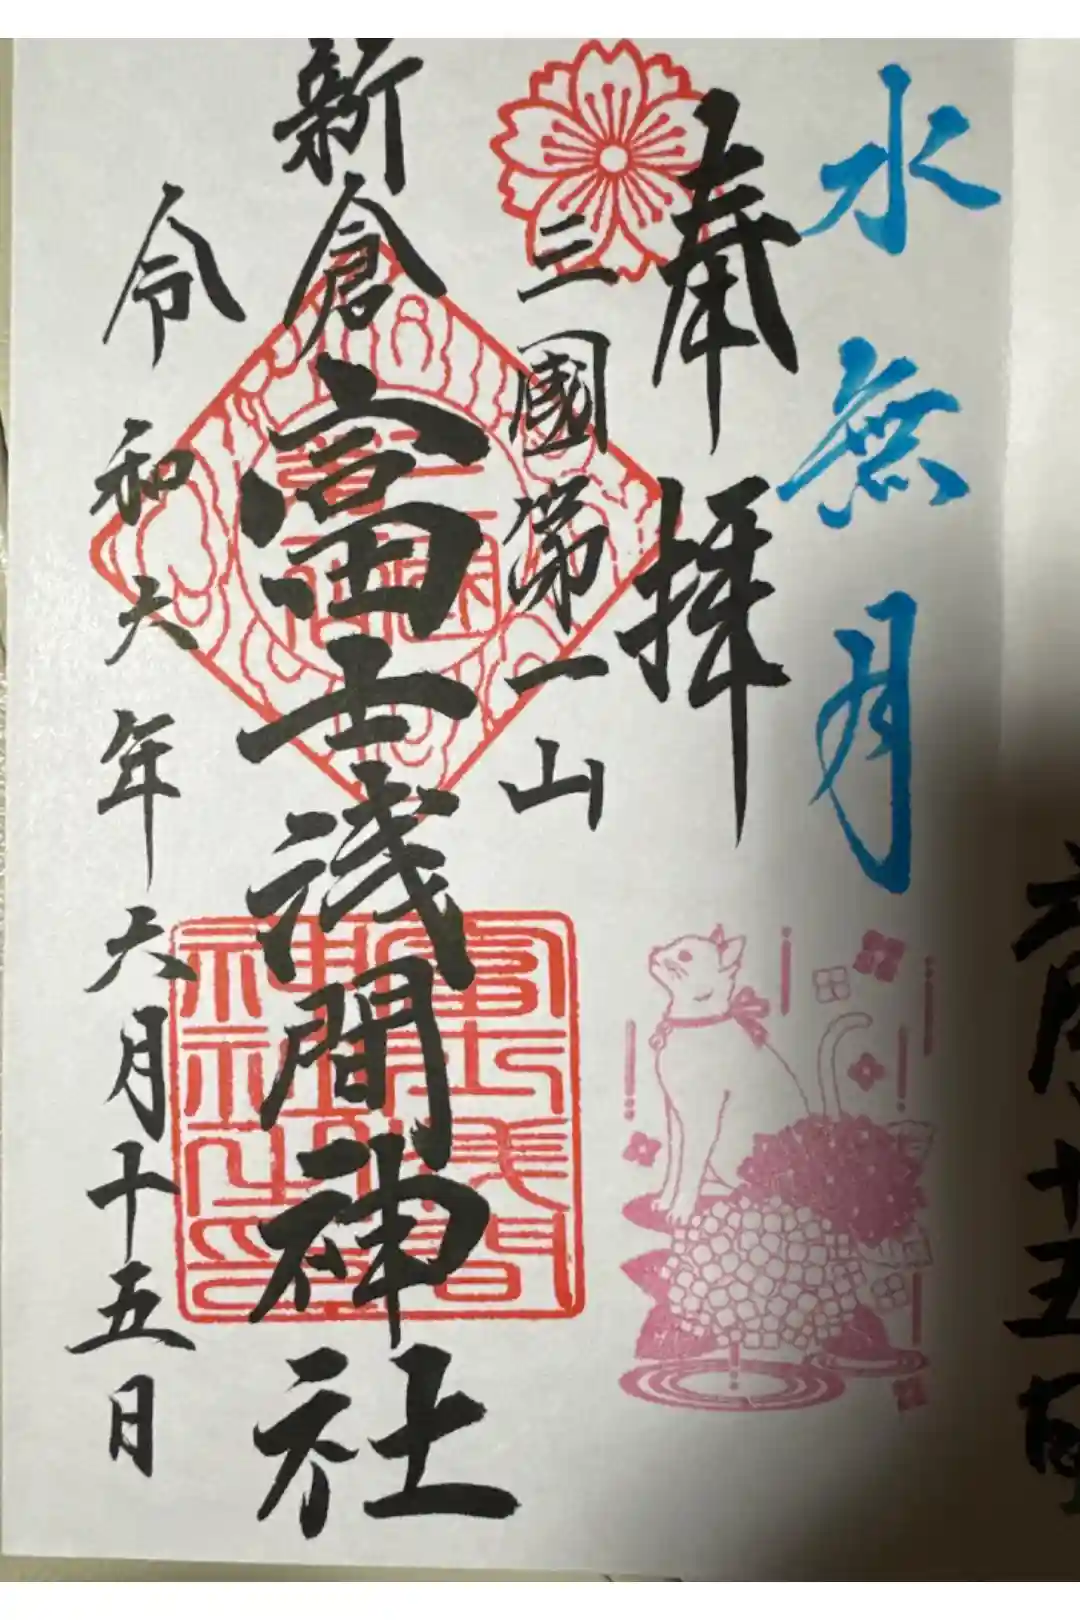 水無月
奉拝
三國第一山
新倉富士浅間神社
令和六年六月十五日